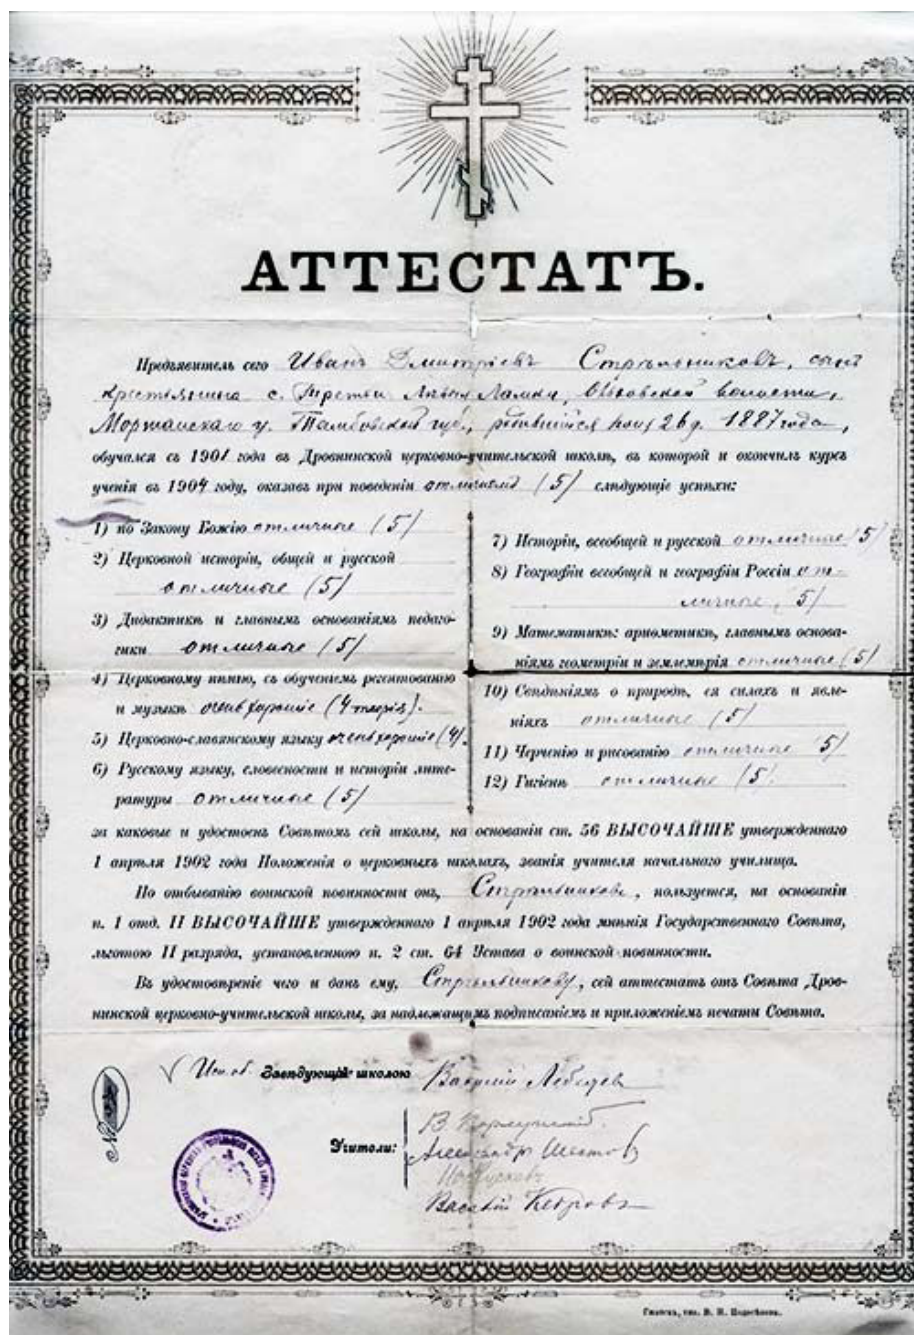 АТТЕСТАТЪ.
Предъявитель сего Иванъ Дмитріевъ Стрѣльниковъ, сынъ
крестьянина с. Третьи Лѣвыя Ламки, волости,
Моршанскаго у. Тамбовской губ., родившійся 26 д. 1887 года,
обучался съ 1901 года въ Дровнинской церковно-учительской школѣ, въ которой и окончилъ курсъ
ученія въ 1904 году, оказавъ при поведеніи отличномъ (5) слѣдующіе успѣхи:
1) по Закону Божію отличные (5)
2) Церковной исторіи, общей и русской
отличные (5)
3) Дидактикѣ и главнымъ основаніямъ педаго-
гики отличные (5)
4) Церковному пѣнію, съ обученіемъ регентованію
и музыкѣ очень хорошіе (4
5) Церковно-славянскому языку очень хорошіе (4).
6) Русскому языку, словесности и исторіи лите-
ратуры отличные (5)
7) Исторіи, всеобщей и русской отличные (5)
8) Географіи всеобщей и географіи Россіи от-
личные, (5)
9) Математикѣ: ариѳметикѣ, главнымъ основа-
ніямъ геометріи и землемѣрія отличные (5)
10) Свѣдѣніямъ о природѣ, ея силахъ и явле-
ніяхъ отличные (5)
11) Черченію и рисованію отличные (5)
12) Гигіенѣ отличные (5).
за каковые и удостоенъ Совѣтомъ сей школы, на основаніи ст. 56 ВЫСОЧАЙШЕ утвержденнаго
1 апрѣля 1902 года Положенія о церковныхъ школахъ, званія учителя начальнаго училища.
По отбыванію воинской повинности онъ, Стрѣльниковъ, пользуется, на основаніи
п. 1 отд. II ВЫСОЧАЙШЕ утвержденнаго 1 апрѣля 1902 года мнѣнія Государственнаго Совѣта,
льготою II разряда, установленною п. 2 ст. 64 Устава о воинской повинности.
Въ удостовѣреніе чего и данъ ему, Стрѣльникову, сей аттестатъ отъ Совѣта Дров-
нинской церковно-учительской школы, за надлежащимъ подписаніемъ и приложеніемъ печати Совѣта.
Исп. об. Завѣдующій школою Василій Лебедев
Учители: В.
Александръ Шестов
Василій Кедровъ
№
Гжатскъ, тип. В. И.